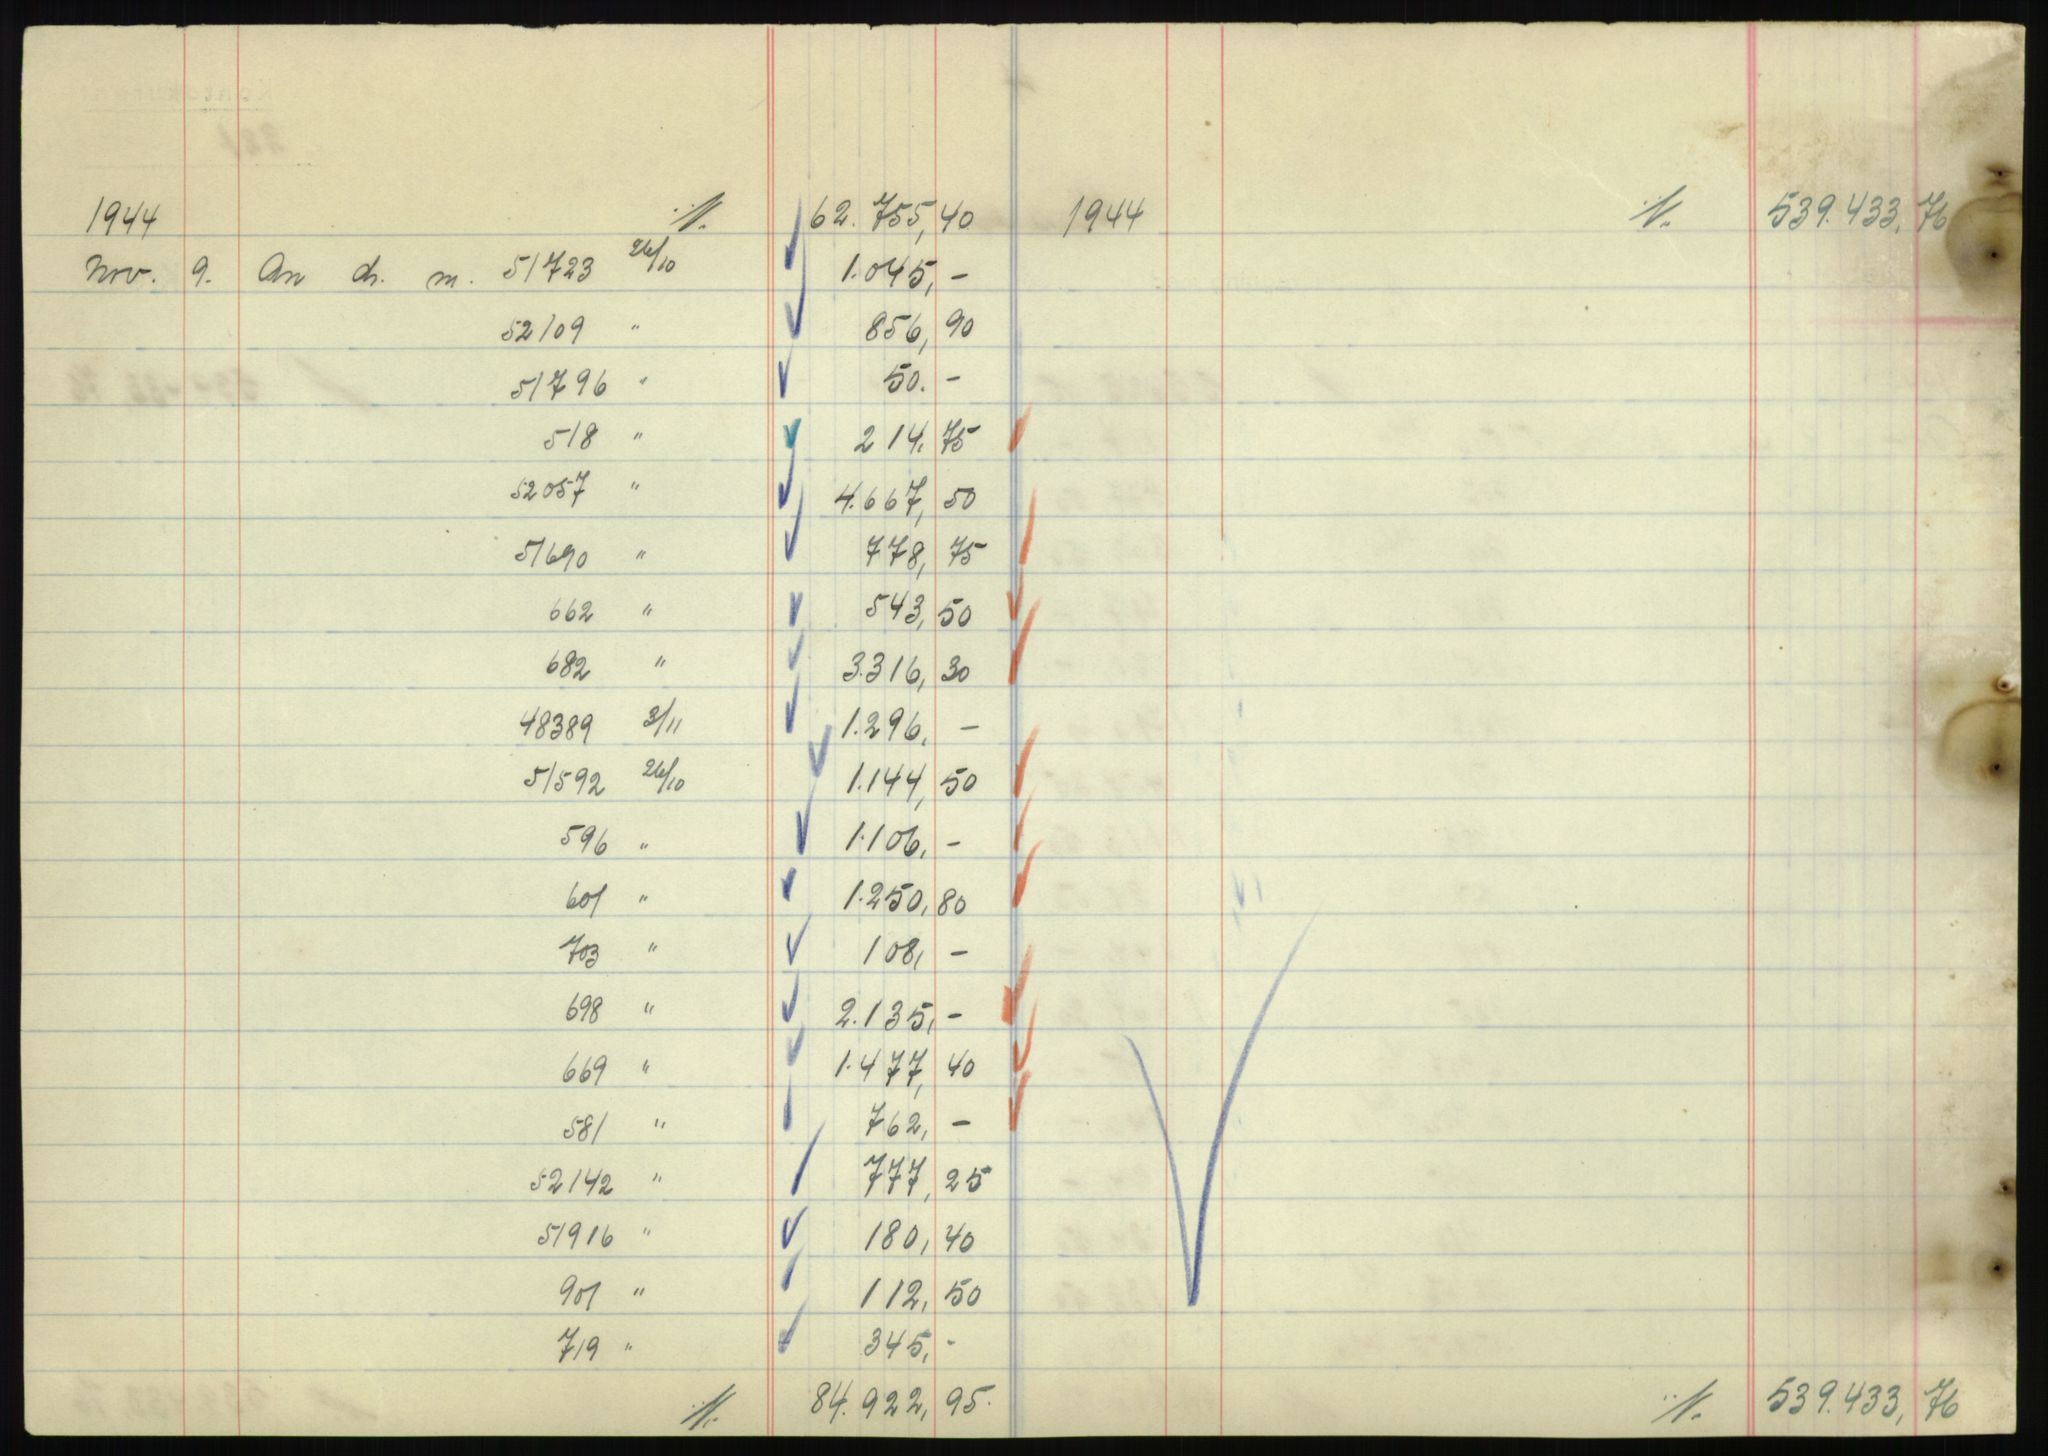 1944 ·/·. 62.755,40 1944 ·/·. 539.433,76
Nov. 9. An ch. m. 51723 26/10 1.045,-
52109 " 856,90
51796 " 50.-
518 " 214,75
52057 " 4.667,50
51690 " 778,75
662 " 543,50
682 " 3.316,30
48389 3/11 1.296,-
51592 26/10 1.144,50
596 " 1.106,-
601 " 1.250,80
703 " 108,-
698 " 2.135,-
669 " 1.477,40
581 " 762,-
52142 " 777,25
51916 " 180,40
901 " 112,50
719 " 345,-
·/·. 84.922,95. ·/·. 539.433,76